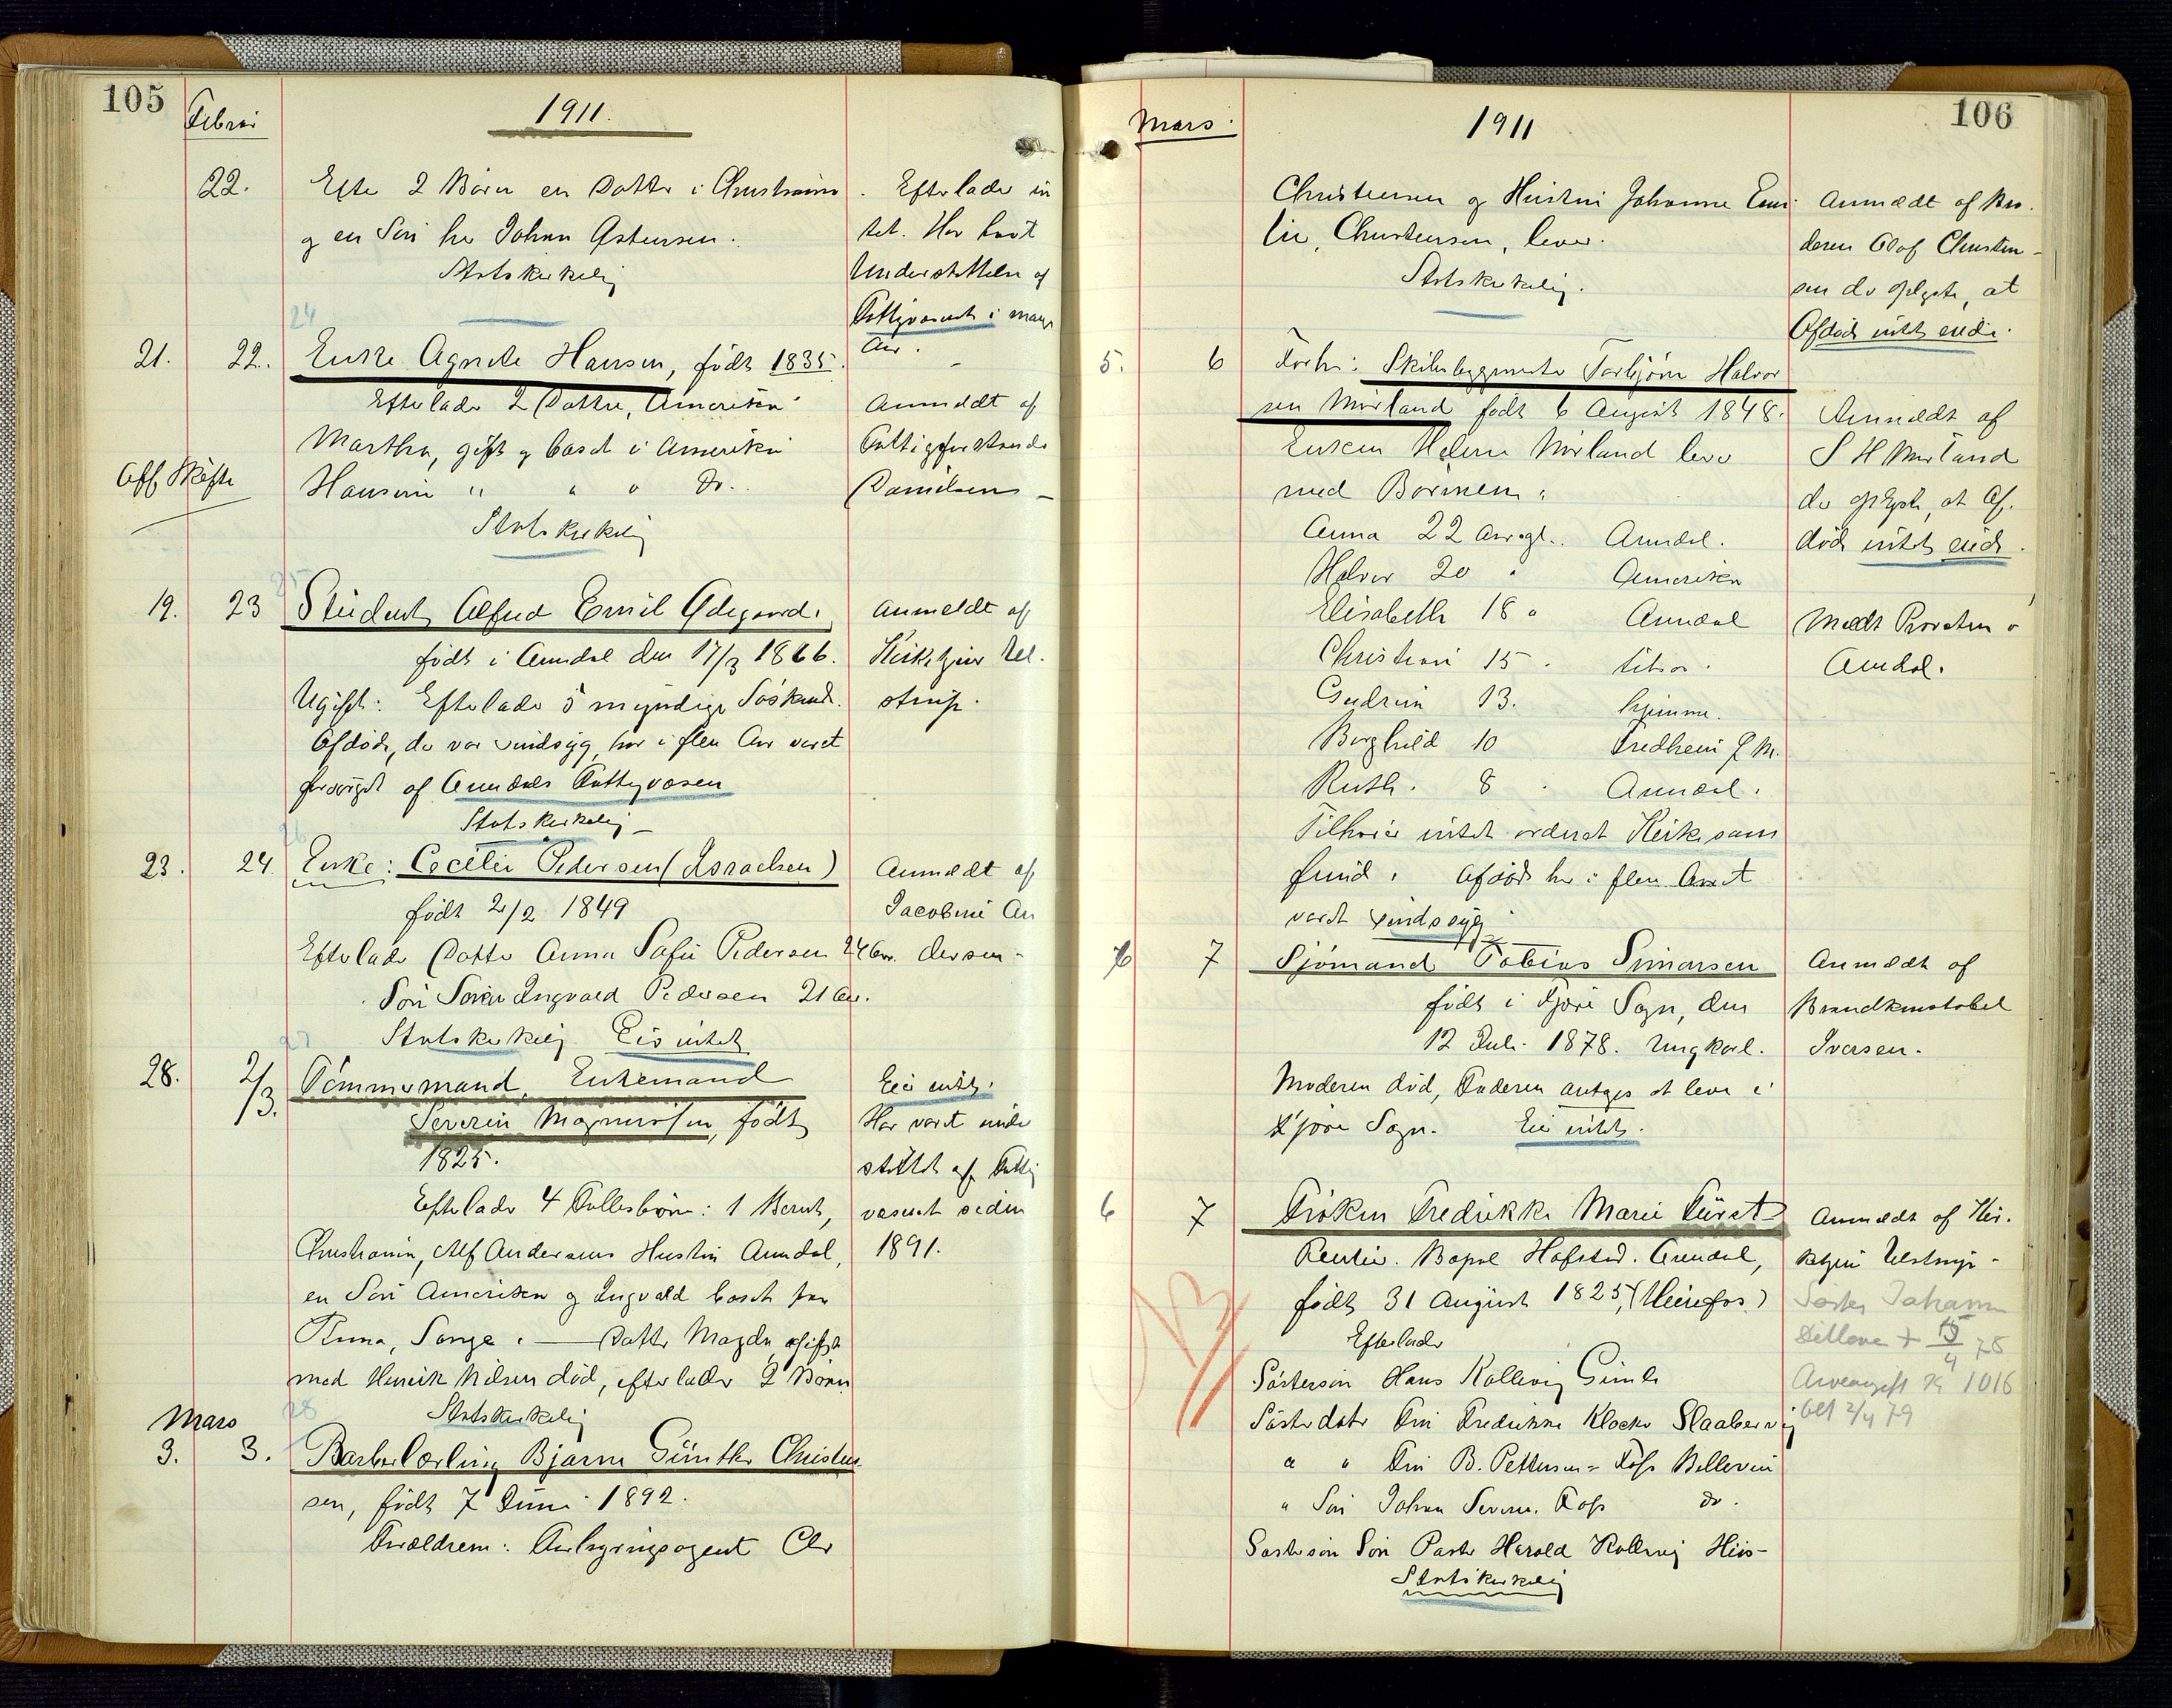 105
Februar
1911.
22.
Efte 2 Børn en Datter i Christiania
og en Søn her Johan Østensen.
Statskirkelig
Efterlader in
tet. Har havt
Understøttelse af
Fattigvæsenet i mange
Aar.
24
21. 22. Enke Agnete Hansen, født 1835.
Efterlader 2 Døttre, Amerika
Martha, gift og bosat i Amerika
Hansine " " " Do.
Statskirkelig
Off Skifte
Anmeldt af
Fattigforstander
Danielsen -
25
19. 23 Student Alfred Emil Ødegaard.
født i Arendal den 17/3 1866.
Ugift: Efterlader 5 myndige Søskende.
Afdøde, der var sindsyg, har i flere Aar været
forsørget af Arendals Fattigvæsen
Statskirkelig -
Anmeldt af
Kirketjener Ul-
strup.
26
23. 24. Enke: Cecilie Pedersen (Israelsen)
født 2/2 1849
Efterlader Datter Anna Sofie Pedersen 24 Aar.
Søn Søren Ingvald Pedersen 21 Aar.
Statskirkelig Eier intet
Anmeldt af
Jacobine An
dersen -
27
28. 2/3. Tømmermand, Enkemand
Severin Magnussen, født
1825.
Efterlader 4 Fællesbørn: 1 Bernt,
Christiania, Alf Andersens Hustru Arendal,
en Søn Amerika og Ingvald bosat paa
Runa, Songe. — Datter Magda, gift
med Henrik Nilsen død, efterlader 2 Børn
Statskirkelig
Eier intet.
Har været under
støttet af Fattig
væsenet siden
1891.
Mars
28
3. 3. Barberlærling Bjarne Günther Christen
sen, født 7 Juni 1892.
Forældrene: Forhyringsagent Chr
106
Mars.
1911
Christensen og Hustru Johanne Emi
lie, Christensen, lever.
Statskirkelig.
Anmeldt af Bro-
deren Olaf Christen-
sen der oplyste, at
Afdøde intet eiede.
5. 6 Forh: Skibsbyggmester Torbjørn Halvor
sen Mørland født 6 August 1848.
Enken Helene Mørland lever
med Børnene:
Anna 22 Aar gl. Arendal.
Halvor 20 " Amerika
Elisabeth 18 " Arendal
Christian 15 " tilsøs.
Gudrun 13. hjemme.
Borghild 10 Fredheim
Ruth. 8 " Arendal.
Tilhører intet ordnet Kirkesam
fund. Afdøde har i flere Aar
været sindssyg
Anmeldt af
S H Mørland
der oplyste, at Af-
døde intet eiede.
Meldt Provsten i
Arendal.
6 7 Sjømand Tobias Simonsen
født i Fjære Sogn, den
12 Juli 1878. Ungkarl.
Moderen død, Faderen antages at leve i
Fjære Sogn. Eier intet.
Anmeldt af
Brandkonstabel
Iversen.
6 7 Frøken Fredrikke Marie Fürst
Rentier. Bopæl Hafsted. Arendal,
født 31 August 1825,
Efterlader
Søstersøn Hans Kallevig Gimle
Søsterdatter Fru Fredrikke Klocker Slaabervig
" " Fru B. Pettersen - Foss Bellevue
" Søn Johan Severin Foss do.
Søstersøns Søn Pastor Harald Kallevig His-
Statskirkelig
Anmeldt af Kir-
ketjener Ulstrup -
Søster Johanne
+ 15/4 78
Arveavgift Kr 1016
bet 2/4 79